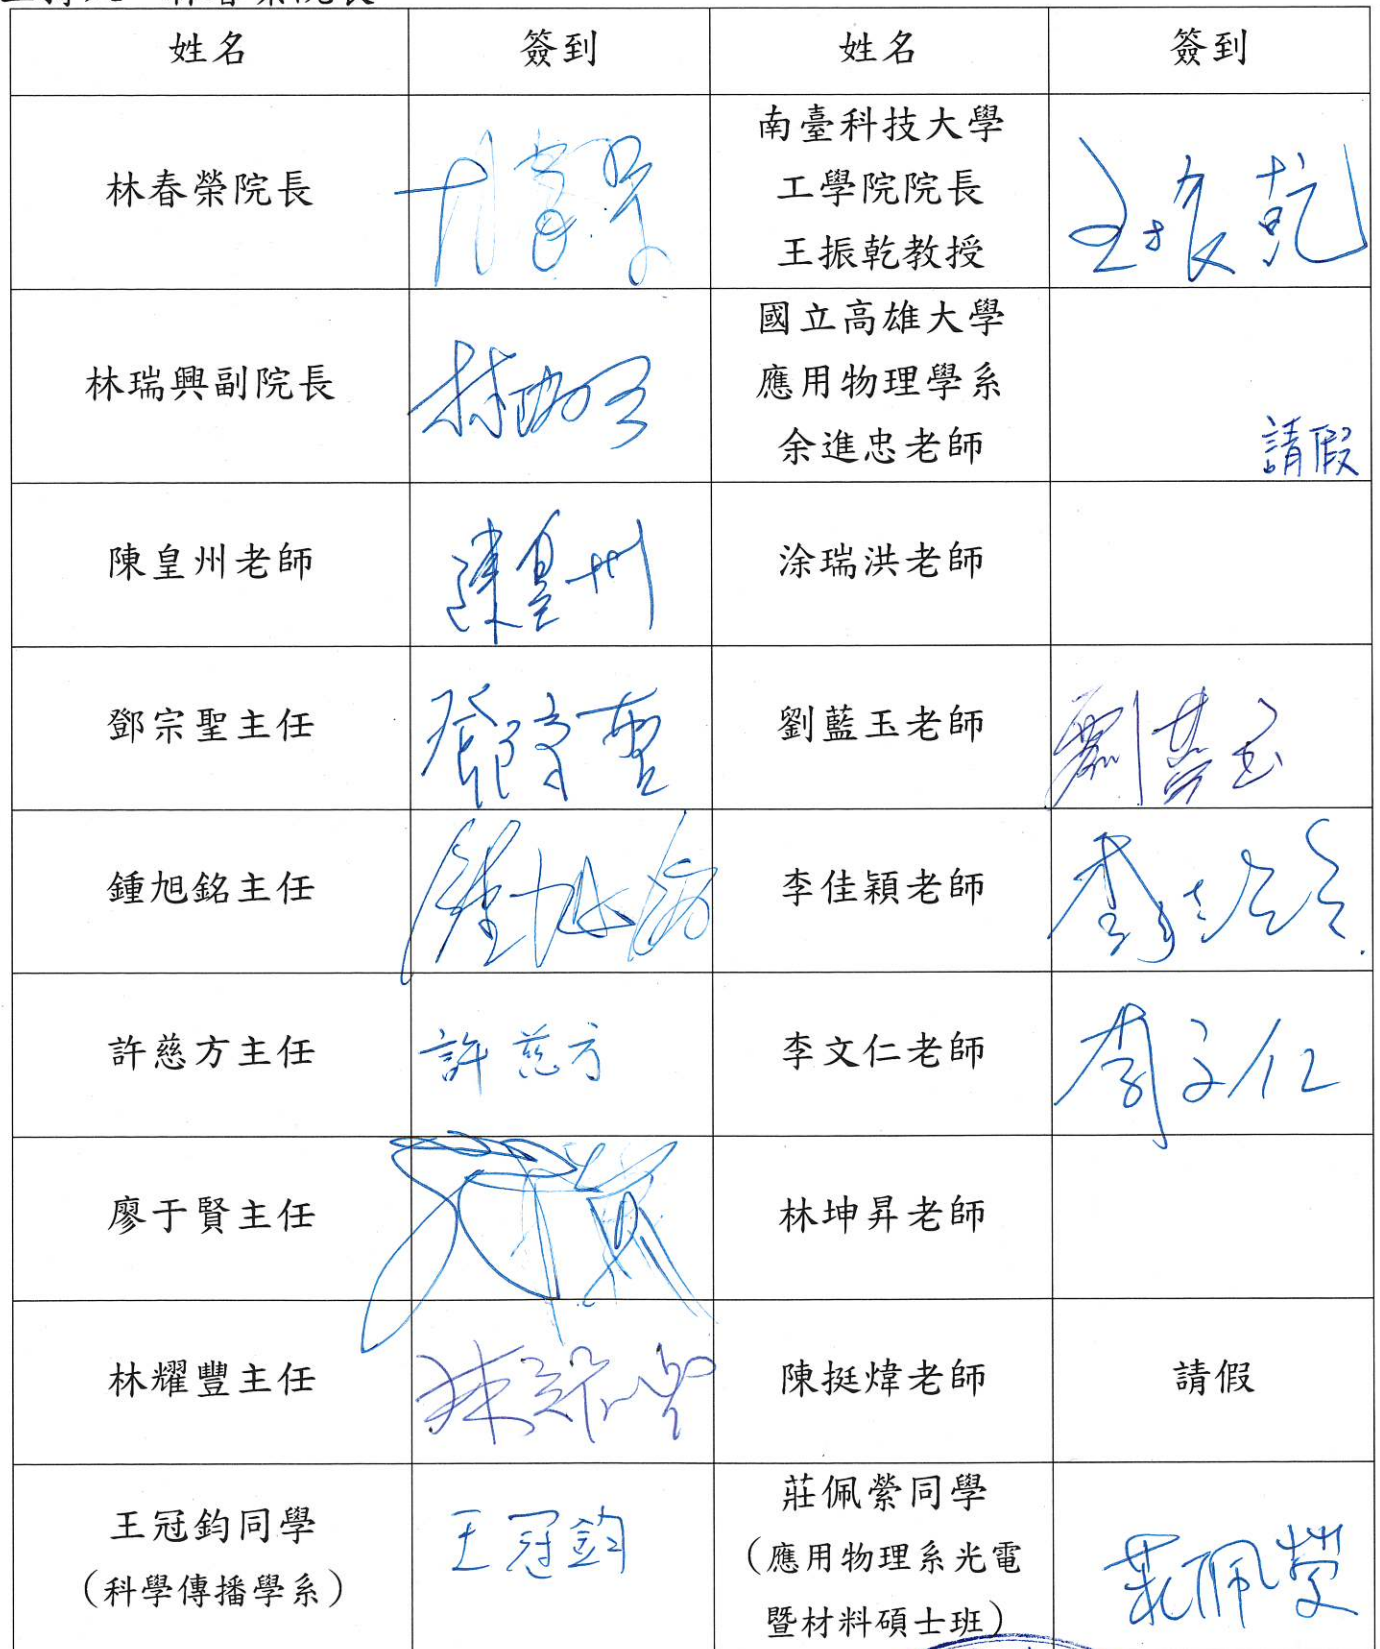 姓名 簽到 姓名 簽到
林春榮院長 林春榮 南臺科技大學
工學院院長
王振乾教授 王振乾
林瑞興副院長 林瑞興 國立高雄大學
應用物理學系
余進忠老師 請假
陳皇州老師 陳皇州 涂瑞洪老師
鄧宗聖主任 鄧宗聖 劉藍玉老師 劉藍玉
鍾旭銘主任 鍾旭銘 李佳穎老師
許慈方主任 許慈方 李文仁老師 李文仁
廖于賢主任 林坤昇老師
林耀豐主任 陳挺煒老師 請假
王冠鈞同學
(科學傳播學系) 王冠鈞 莊佩縈同學
(應用物理系光電
暨材料碩士班) 莊佩縈